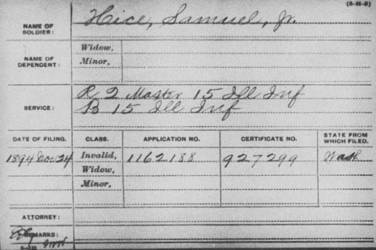 (3-40-B)
NAME OF SOLDIER: Hice, Samuel, Jr.
NAME OF DEPENDENT: Widow,
Minor,
SERVICE: R 2 Master 15 Ill Inf
B 15 Ill Inf
DATE OF FILING. CLASS. APPLICATION NO. CERTIFICATE NO. STATE FROM WHICH FILED.
1894 24 Invalid, 1162188 927299 Wash
Widow,
Minor,
ATTORNEY:
REMARKS: